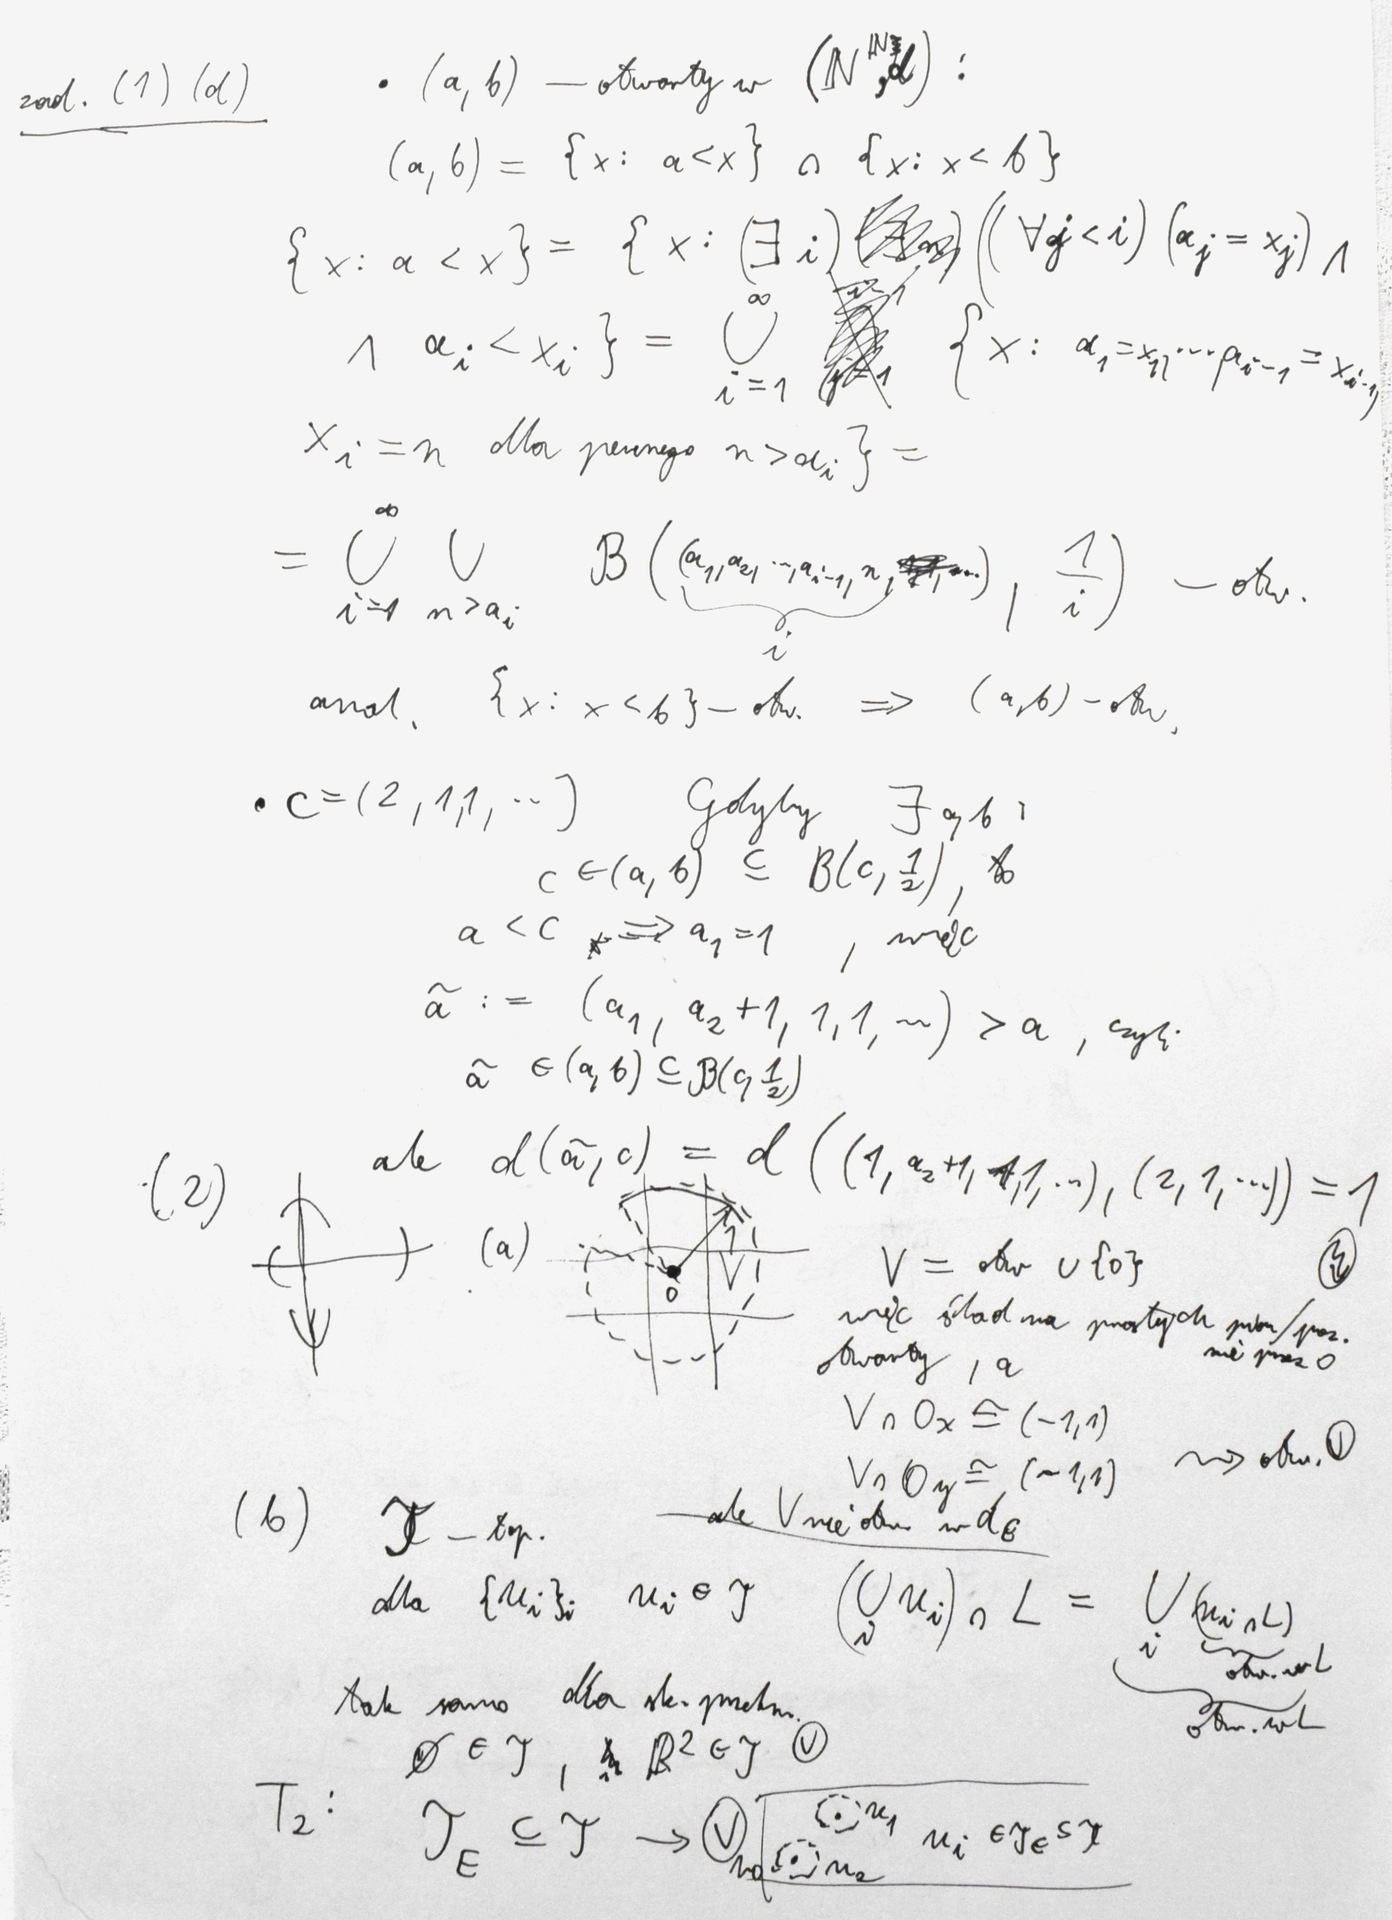 zad. (1) (d)
• (a, b) – otwarty w (ℕ^ℕ, d) :
(a, b) = {x: a < x} ∩ {x: x < b}
{x: a < x} = {x: (∃ i) ((∀ j < i) (a_j = x_j) ∧
∧ a_i < x_i} = ⋃_{i=1}^∞ {x: a_1 = x_1, ..., a_{i-1} = x_{i-1},
x_i = n dla pewnego n > a_i} =
= ⋃_{i=1}^∞ ⋃_{n > a_i} B((a_1, a_2, ..., a_{i-1}, n, ...), 1/i) – otw.
i
anal. {x: x < b} – otw. ⇒ (a, b) – otw.
• c = (2, 1, 1, ...) Gdyby ∃ a, b :
c ∈ (a, b) ⊆ B(c, 1/2), to
a < c ⇒ a_1 = 1, więc
ã := (a_1, a_2 + 1, 1, 1, ...) > a, czyli
ã ∈ (a, b) ⊆ B(c, 1/2)
ale d(ã, c) = d((1, a_2+1, 1, 1, ...), (2, 1, ...)) = 1
(2)
(a)
0
V
V = otw ∪ {0}
więc ślad na prostych pion/poz.
nie przez 0
otwarty, a
V ∩ O_x ≅ (-1, 1)
V ∩ O_y ≅ (-1, 1) ⇝ otw.
ale V nie otw. w d_E
(b) 𝒯 – top.
dla {U_i}_i U_i ∈ 𝒯 (⋃_i U_i) ∩ L = ⋃_i (U_i ∩ L)
otw. w L
otw. w L
tak samo dla sk. przekr.
∅ ∈ 𝒯, ℝ² ∈ 𝒯
T_2: 𝒯_E ⊆ 𝒯 → U_1 U_2 U_i ∈ 𝒯_E ⊆ 𝒯